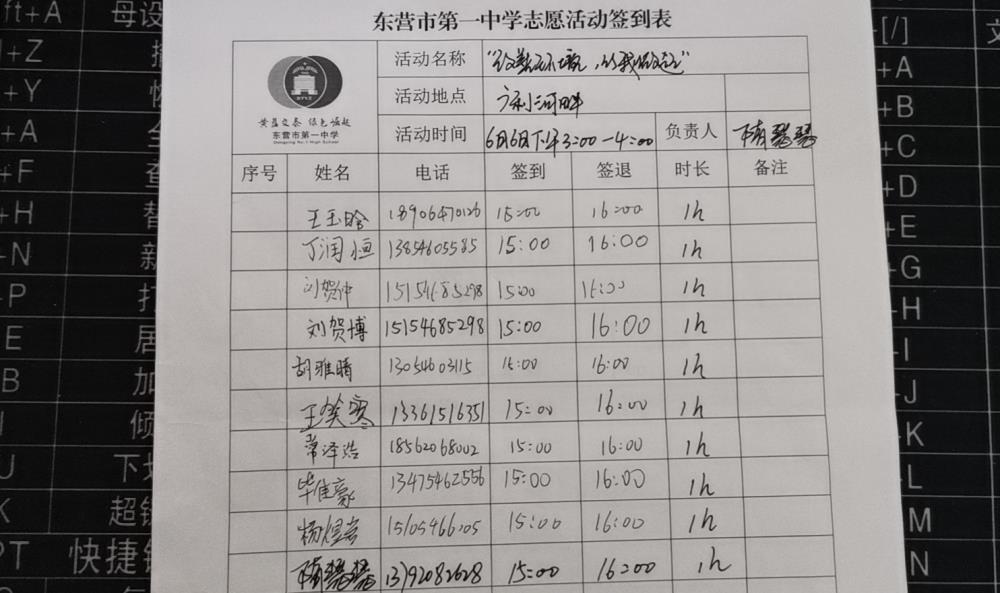 东营市第一中学志愿活动签到表
黄蓝交泰 绿色崛起
东营市第一中学
Dongying No.1 High School
活动名称
活动地点 河畔
活动时间 6月6日下午3:00-4:00 负责人
序号 姓名 电话 签到 签退 时长 备注
王玉晗 18906470126 15:00 16:00 1h
丁润恒 13854605585 15:00 16:00 1h
刘贺仲 15154685298 15:00 16:00 1h
刘贺博 15154685298 15:00 16:00 1h
胡雅晴 13054603115 15:00 16:00 1h
王笑寒 13361516351 15:00 16:00 1h
常泽浩 18562068002 15:00 16:00 1h
毕佳豪 13475462556 15:00 16:00 1h
杨煜 15:00 16:00 1h
15:00 16:00 1h
ft+A 母设
+Z
+Y
+A
+F
+H 替
+N 新
+P 打
E 居
B 加
倾
J 下划
K 超链
PT 快捷键
[/]
+A
+B
+C
+D
+E
+G
+H
+I
+J
+K
+L
+M
+N